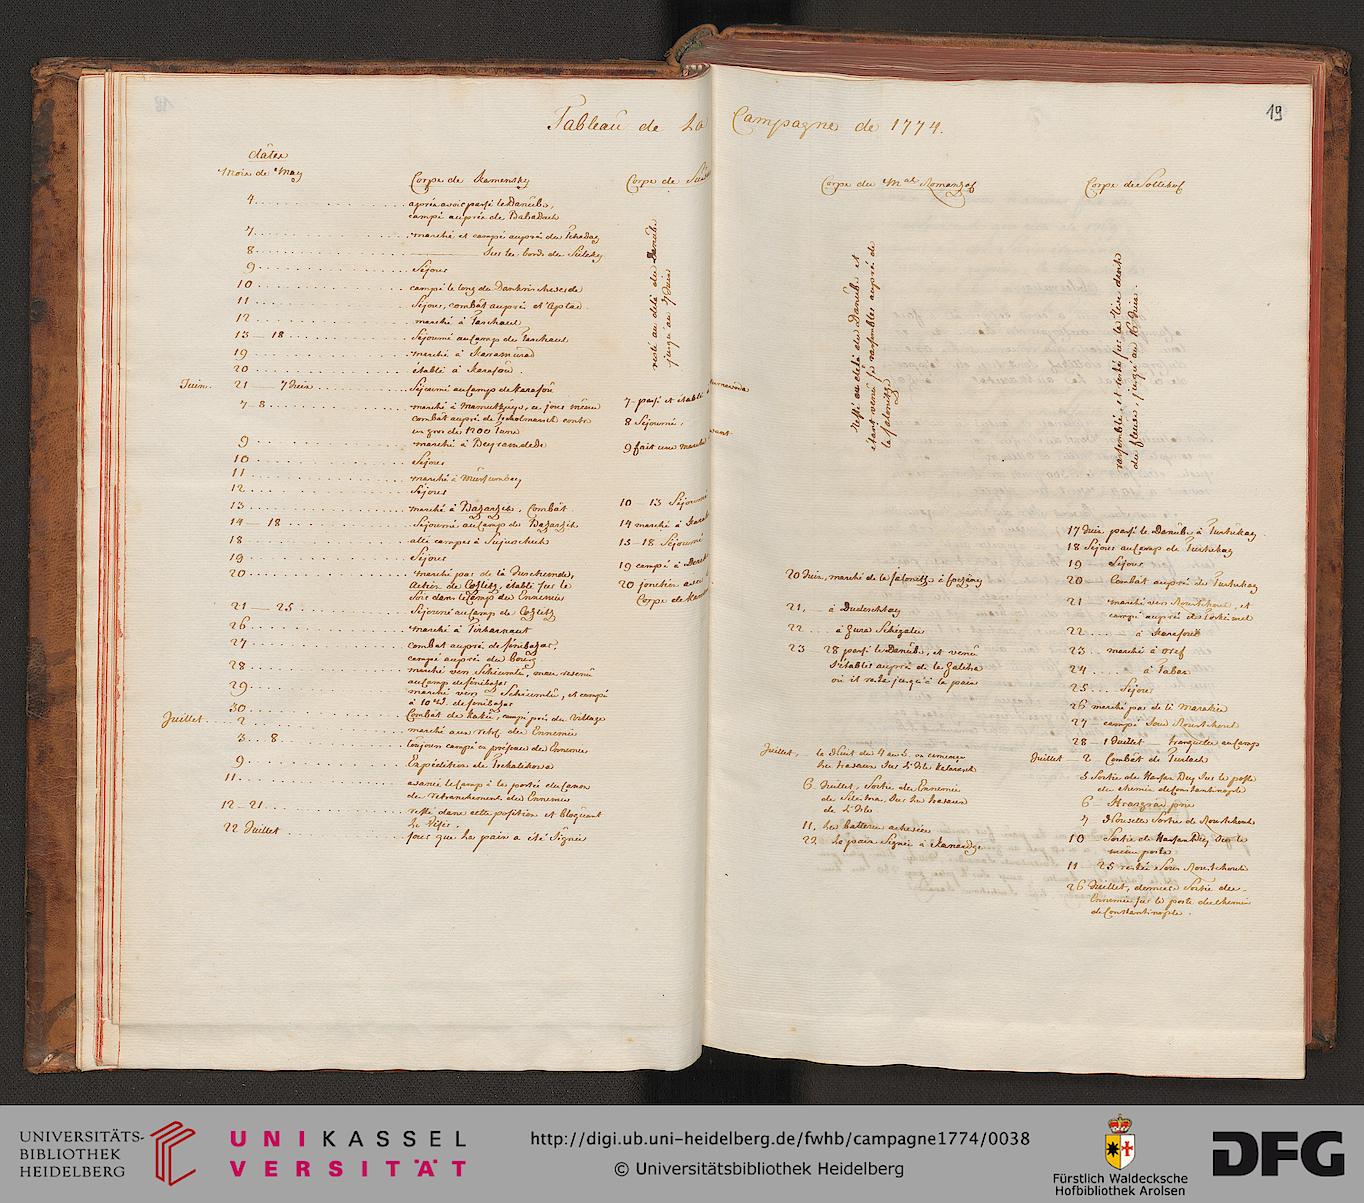 Tableau de La Campagne de 1774.
19
dâtes
Mois de May
Corps de Kamensky
4. après avoir passé le Danube,
campé auprès de Babadach
7. marché et campé auprès du
8. sur les bords du
9. Séjour
10. campé le long du
11. Séjour, combât auprès
12. marché à
13 — 18. Séjourné au Camp de
19. marché à Karamurad
20. établi à Karasou.
Juin. 21 — 7 Juin. Séjourné au Camp de Karasou
7 — 8. marché à ce jour même
combât auprès de contre
un gros de 1200
9. marché à Beyramdede
10. Séjour
11. marché à
12. Séjour
13. marché à Bazarzik, Combât
14 — 18. Séjourné au Camp de Bazarzik
18. allé camper à
19. Séjour
20. marché par de là
Action de Cozlitz, établi sur le
Soir dans le Camp des Ennemis
21 — 25. Séjourné au Camp de Cozlitz
26. marché à
27. combat auprès de Jenibazar,
campé auprès du bourg
28. marché vers Schiumla, mais revenu
au Camp de Jenibazar
29. marché vers Schiumla, et campé
à 10 de Jenibazar
30.
Juillet. 2. Combât de campé près du Village
3 .. 8. marché aux des Ennemis
toujours campé en présence des Ennemis
9. Expédition de Tschalikova
11. avancé le Camp à la portée du Canon
des retranchements des Ennemis
12 — 21. resté dans cette position et bloquant
le Visir
22 Juillet. jour que la paix a été Signée
Corps de
resté au delà du Danube
jusqu'au 7 Juin
7 passé et établi à
8 Séjourné,
9 fait une marche
10 — 13 Séjourné
14 marché à
15 — 18 Séjourné
19 campé à
20 jonction avec
Corps de
Corps du Mal Romanzof
Resté au delà du Danube et
étant venu se rassembler auprès de
la Jalonitza
20 Juin, marché de la Jalonitz à
21, — à
22 à
23 28 passé le Danube, et venu
s'établir auprès de la
où il resta jusqu'à la paix
Juillet, la Nuit du 4 au 5. on commença
les travaux sur l'Isle
6 Juillet, Sortie des Ennemis
de Silistria, sur les travaux
de l'Isle
11, les batteries achevées
22. la paix Signée à Kanardge
Corps de Soltikof
rassemblé, et resté sur la rive
du fleuve, jusqu'au 16 Juin.
17 Juin, passé le Danube à Turtukay.
18 Séjour au Camp de Turtukay
19 — Séjour
20 — Combât auprès de Turtukay
21 — marché vers Roustchouk, et
campé auprès de
22 à
23 marché à
24 à
25 Séjour
26 marché par de là
27 campé sous Roustchouk
28 — 1 Juillet — tranquille au Camp
Juillet — 2 Combât de
5 Sortie de Hassan Bey sur le poste
du chemin de Constantinople
6 — pris
7 Nouvelle Sortie de Roustchouk
10 Sortie de Hassan Bey sur le
même poste
11 — 25 resté sous Roustchouk
26 Juillet, dernière Sortie des
Ennemis sur le poste du chemin
de Constantinople.
UNIVERSITÄTS-
BIBLIOTHEK
HEIDELBERG
UNIKASSEL
VERSITÄT
http://digi.ub.uni-heidelberg.de/fwhb/campagne1774/0038
© Universitätsbibliothek Heidelberg
Fürstlich Waldecksche
Hofbibliothek Arolsen
DFG